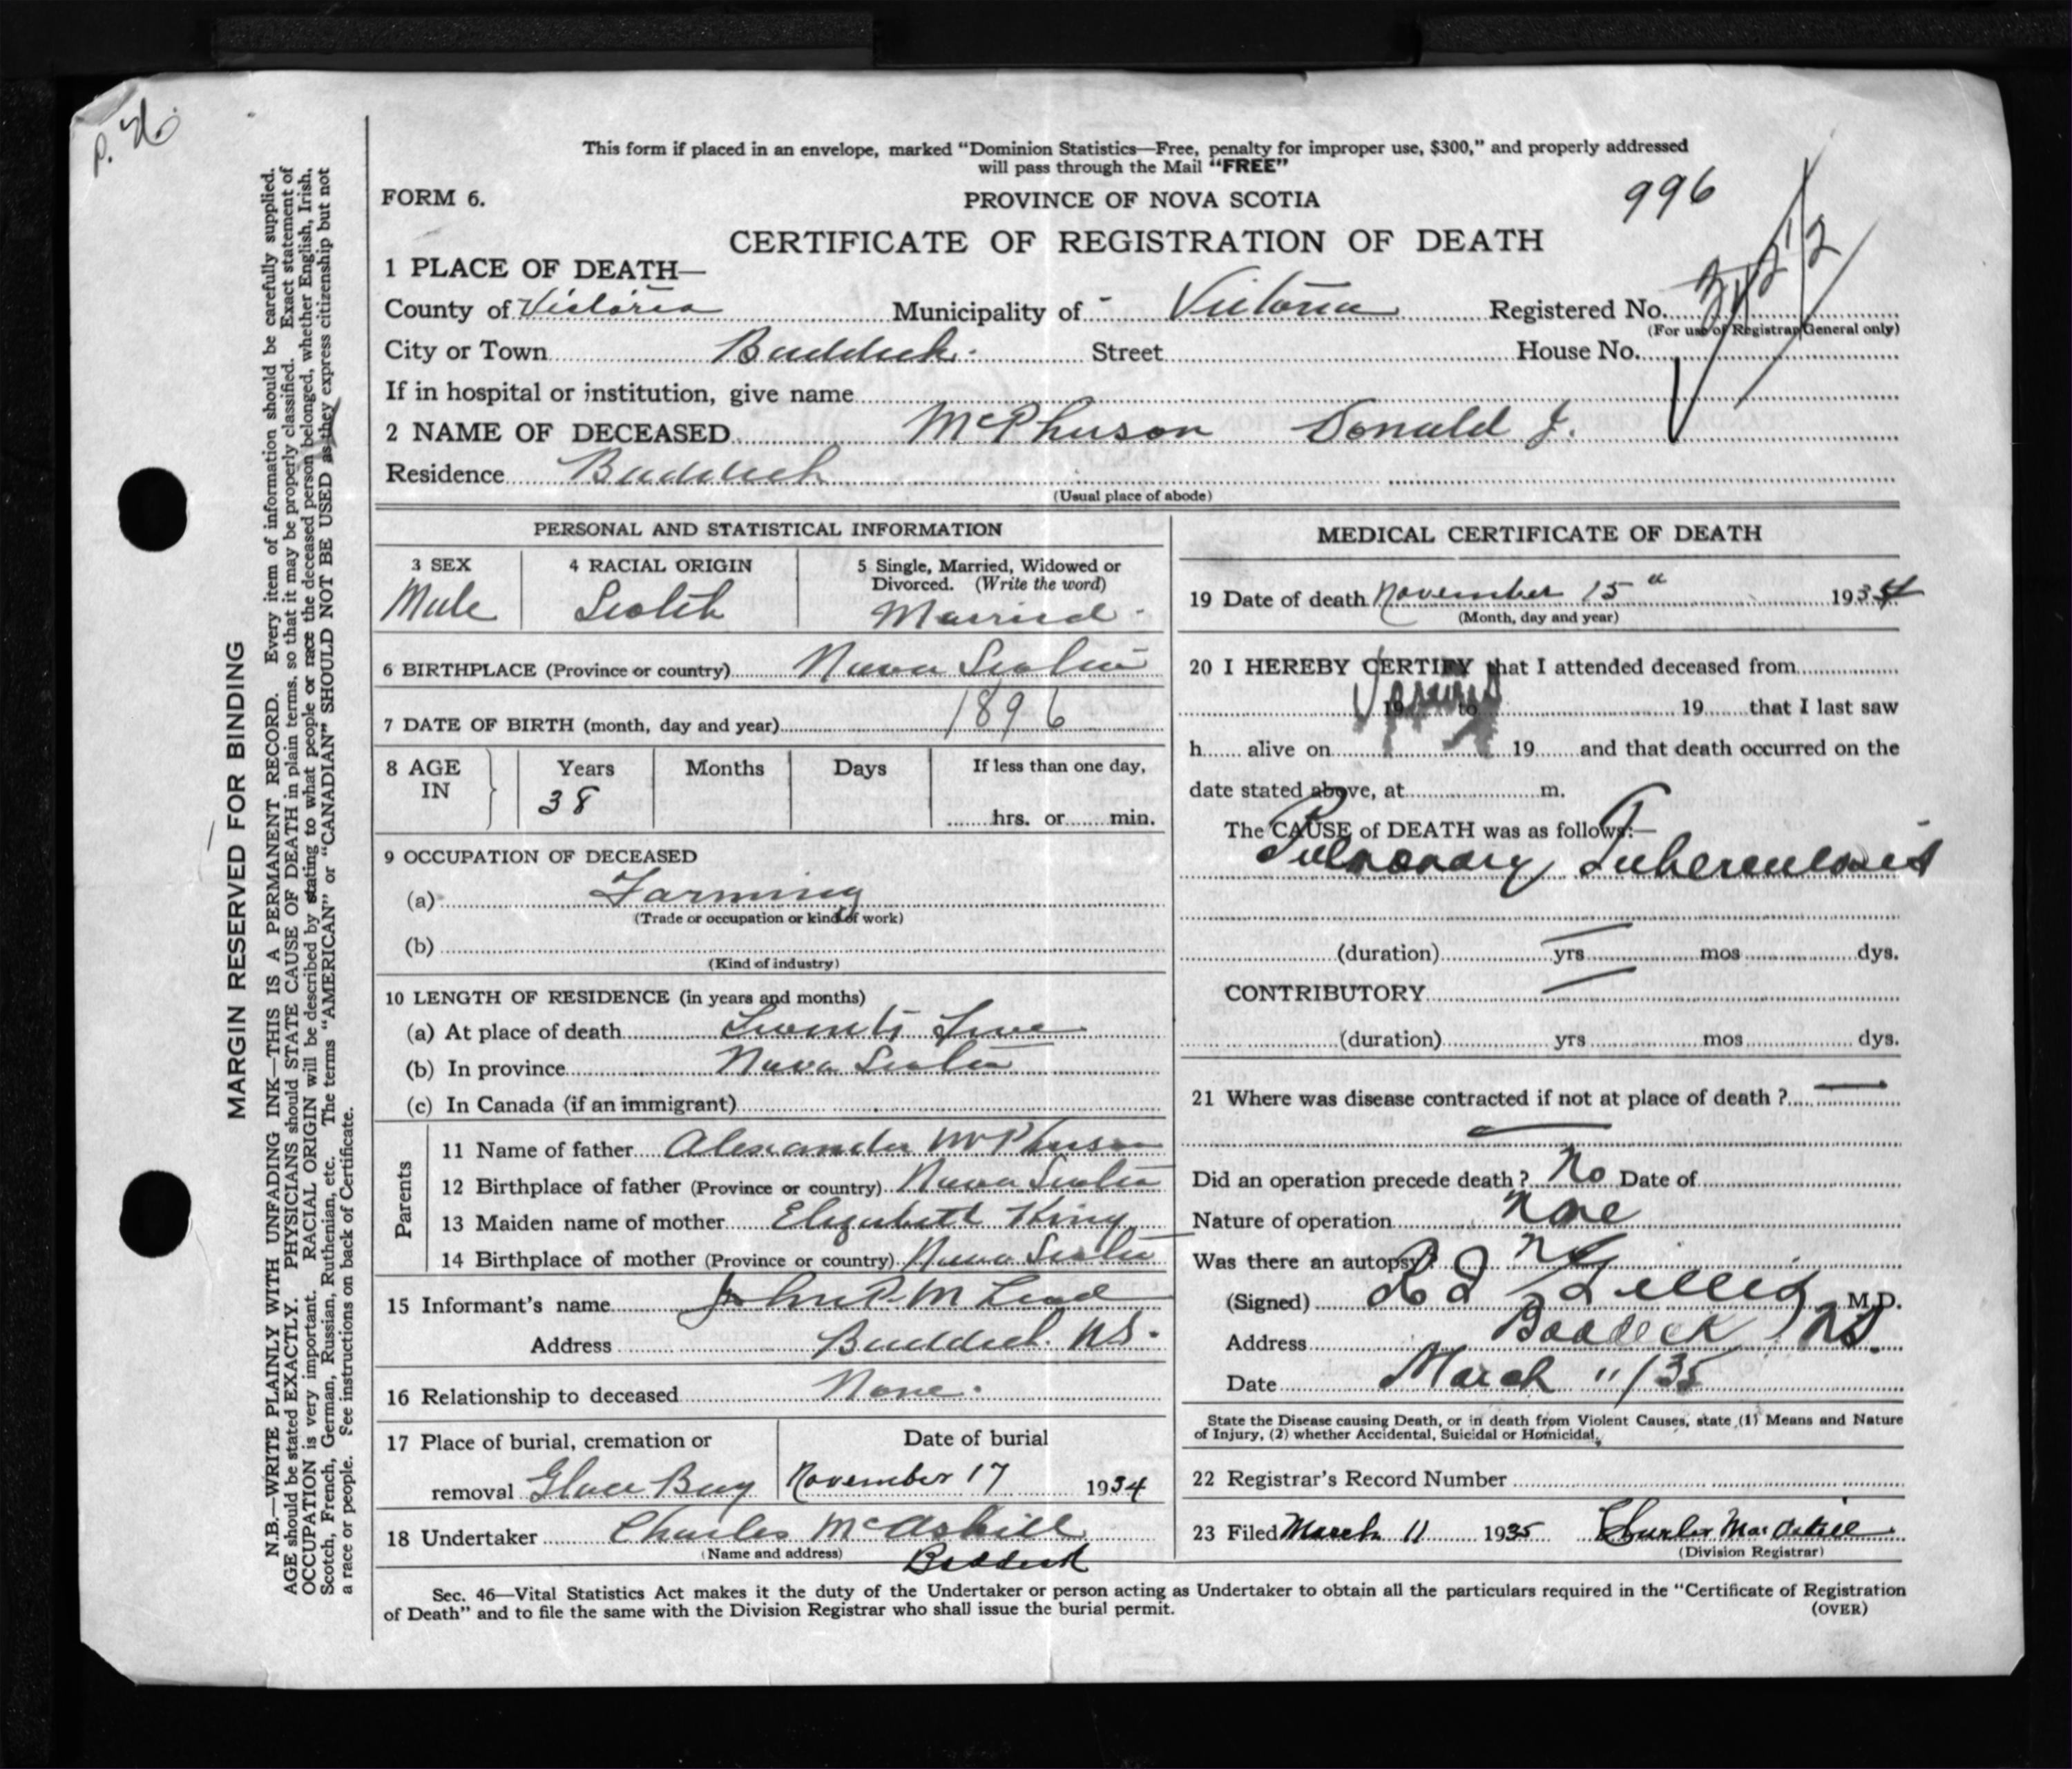 P. 26
This form if placed in an envelope, marked "Dominion Statistics—Free, penalty for improper use, $300," and properly addressed
will pass through the Mail "FREE"
FORM 6.
PROVINCE OF NOVA SCOTIA
996
CERTIFICATE OF REGISTRATION OF DEATH
1 PLACE OF DEATH—
County of Victoria Municipality of Victoria Registered No.
(For use of Registrar General only)
City or Town Baddeck. Street House No.
If in hospital or institution, give name
2 NAME OF DECEASED McPherson Donald J.
Residence Baddeck
(Usual place of abode)
PERSONAL AND STATISTICAL INFORMATION
3 SEX 4 RACIAL ORIGIN 5 Single, Married, Widowed or
Divorced. (Write the word)
Male Scotch Married
6 BIRTHPLACE (Province or country) Nova Scotia
7 DATE OF BIRTH (month, day and year) 1896
8 AGE IN Years Months Days If less than one day,
38 hrs. or min.
9 OCCUPATION OF DECEASED
(a) Farming
(Trade or occupation or kind of work)
(b)
(Kind of industry)
10 LENGTH OF RESIDENCE (in years and months)
(a) At place of death Twenty
(b) In province Nova Scotia
(c) In Canada (if an immigrant)
Parents
11 Name of father Alexander McPherson
12 Birthplace of father (Province or country) Nova Scotia
13 Maiden name of mother Elizabeth King
14 Birthplace of mother (Province or country) Nova Scotia
15 Informant's name John P. McLeod
Address Baddeck. N.S.
16 Relationship to deceased None.
17 Place of burial, cremation or Date of burial
removal Glace Bay November 17 1934
18 Undertaker Charles McAskill
(Name and address) Baddeck
MEDICAL CERTIFICATE OF DEATH
19 Date of death November 15th 1934
(Month, day and year)
20 I HEREBY CERTIFY that I attended deceased from
19 to 19 that I last saw
h alive on 19 and that death occurred on the
date stated above, at m.
The CAUSE of DEATH was as follows:—
Pulmonary Tuberculosis
(duration) yrs mos dys.
CONTRIBUTORY
(duration) yrs mos dys.
21 Where was disease contracted if not at place of death ?
Did an operation precede death ? No Date of
Nature of operation None
Was there an autopsy? No
(Signed) Gillis M.D.
Address Baddeck N.S.
Date March 11/35
State the Disease causing Death, or in death from Violent Causes, state (1) Means and Nature
of Injury, (2) whether Accidental, Suicidal or Homicidal.
22 Registrar's Record Number
23 Filed March 11 1935 Charles MacAskill
(Division Registrar)
Sec. 46—Vital Statistics Act makes it the duty of the Undertaker or person acting as Undertaker to obtain all the particulars required in the "Certificate of Registration
of Death" and to file the same with the Division Registrar who shall issue the burial permit.
(OVER)
MARGIN RESERVED FOR BINDING
N.B.—WRITE PLAINLY WITH UNFADING INK—THIS IS A PERMANENT RECORD. Every item of information should be carefully supplied.
AGE should be stated EXACTLY. PHYSICIANS should STATE CAUSE OF DEATH in plain terms, so that it may be properly classified. Exact statement of
OCCUPATION is very important. RACIAL ORIGIN will be described by stating to what people or race the deceased person belonged, whether English, Irish,
Scotch, French, German, Russian, Ruthenian, etc. The terms "AMERICAN" or "CANADIAN" SHOULD NOT BE USED as they express citizenship but not
a race or people. See instructions on back of Certificate.